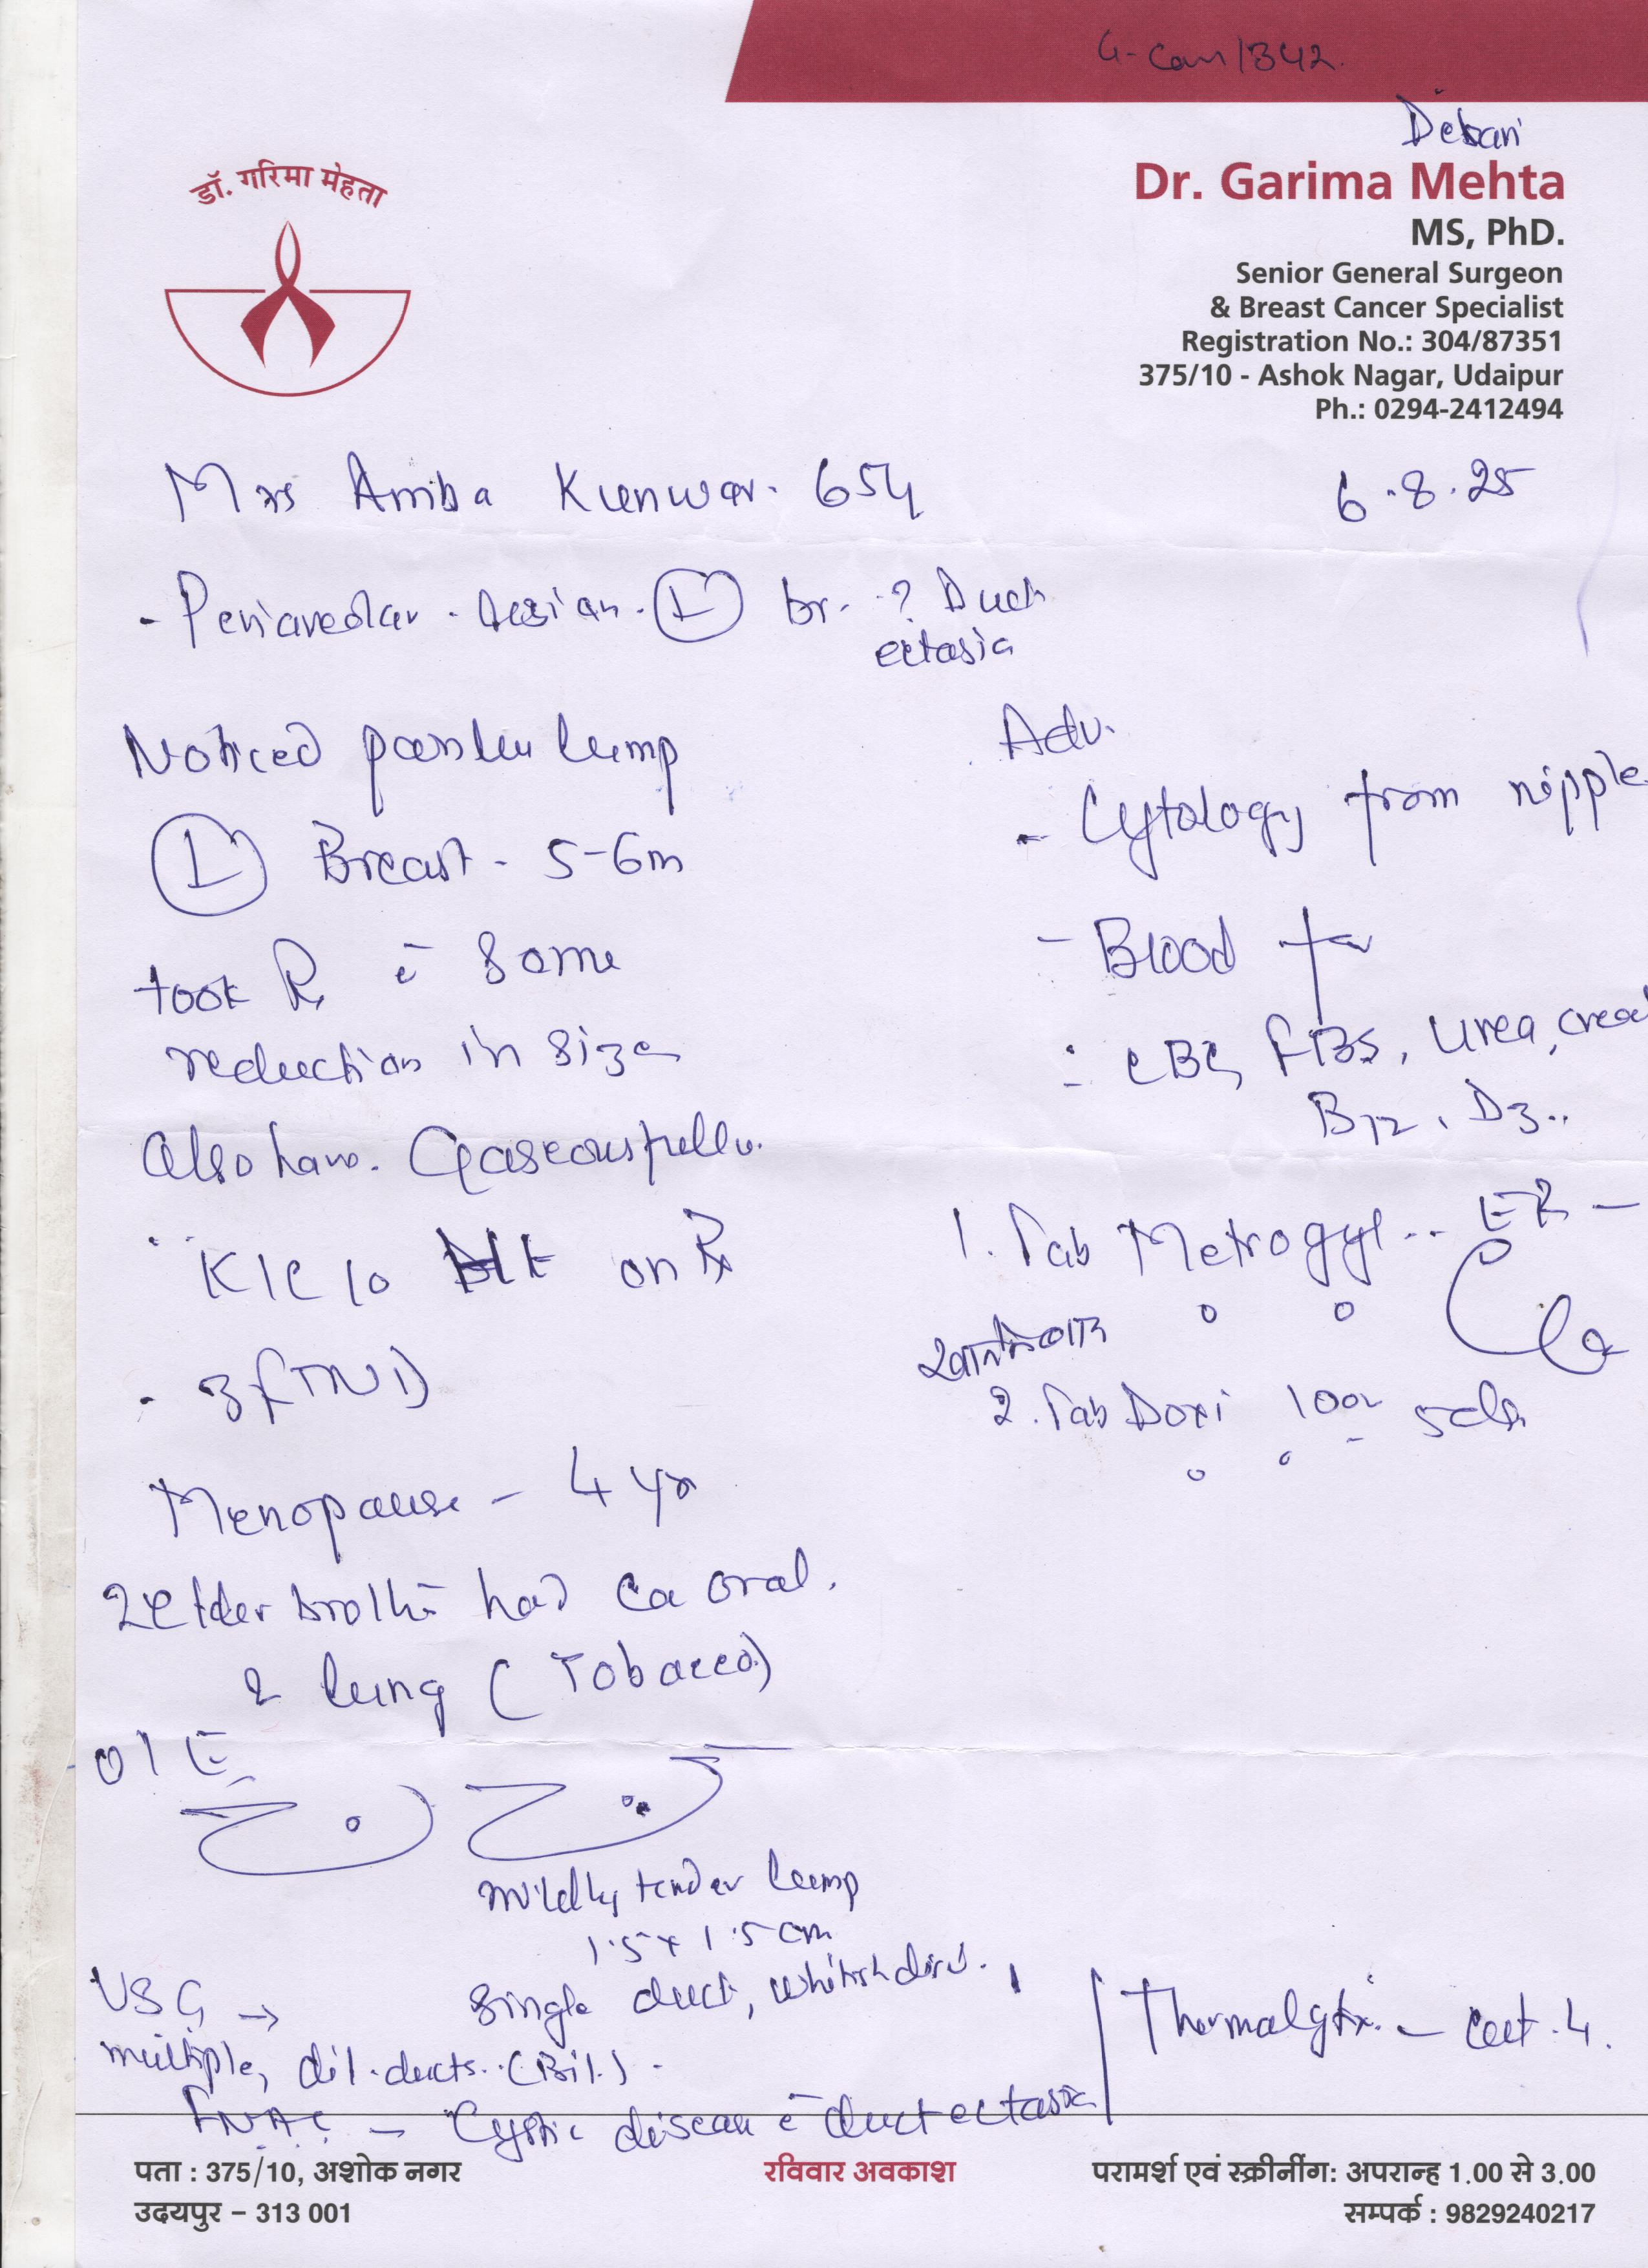 G-Can/1342.
Debari
डॉ. गरिमा मेहता
Dr. Garima Mehta
MS, PhD.
Senior General Surgeon
& Breast Cancer Specialist
Registration No.: 304/87351
375/10 - Ashok Nagar, Udaipur
Ph.: 0294-2412494
Mrs Amba Kunwar. 65y
6.8.25
- Periareolar lesion. (L) br. ? Duct
ectasia
Noticed lump
(L) Breast - 5-6m
took Rx c̄ some
reduction in size
Also have. Gaseous
K/C/o on Rx
. 3 (TND)
Menopause - 4 yr
2 elder broth had Ca oral.
& lung (Tobacco)
O/E
mildly tender lump
1.5 x 1.5 cm
single duct, whitish disch.
USG →
multiple, dil. ducts. (Bil.) .
FNAC - Cystic disease c̄ duct ectasia
Thermalytix. - cat. 4.
Adv.
- Cytology from nipple
- Blood for
: CBC, FBS, Urea, creat
B12, D3..
1. Tab Metrogyl .. ER -
2. Tab Doxi 100
पता : 375/10, अशोक नगर
उदयपुर – 313 001
रविवार अवकाश
परामर्श एवं स्क्रीनींग: अपरान्ह 1.00 से 3.00
सम्पर्क : 9829240217